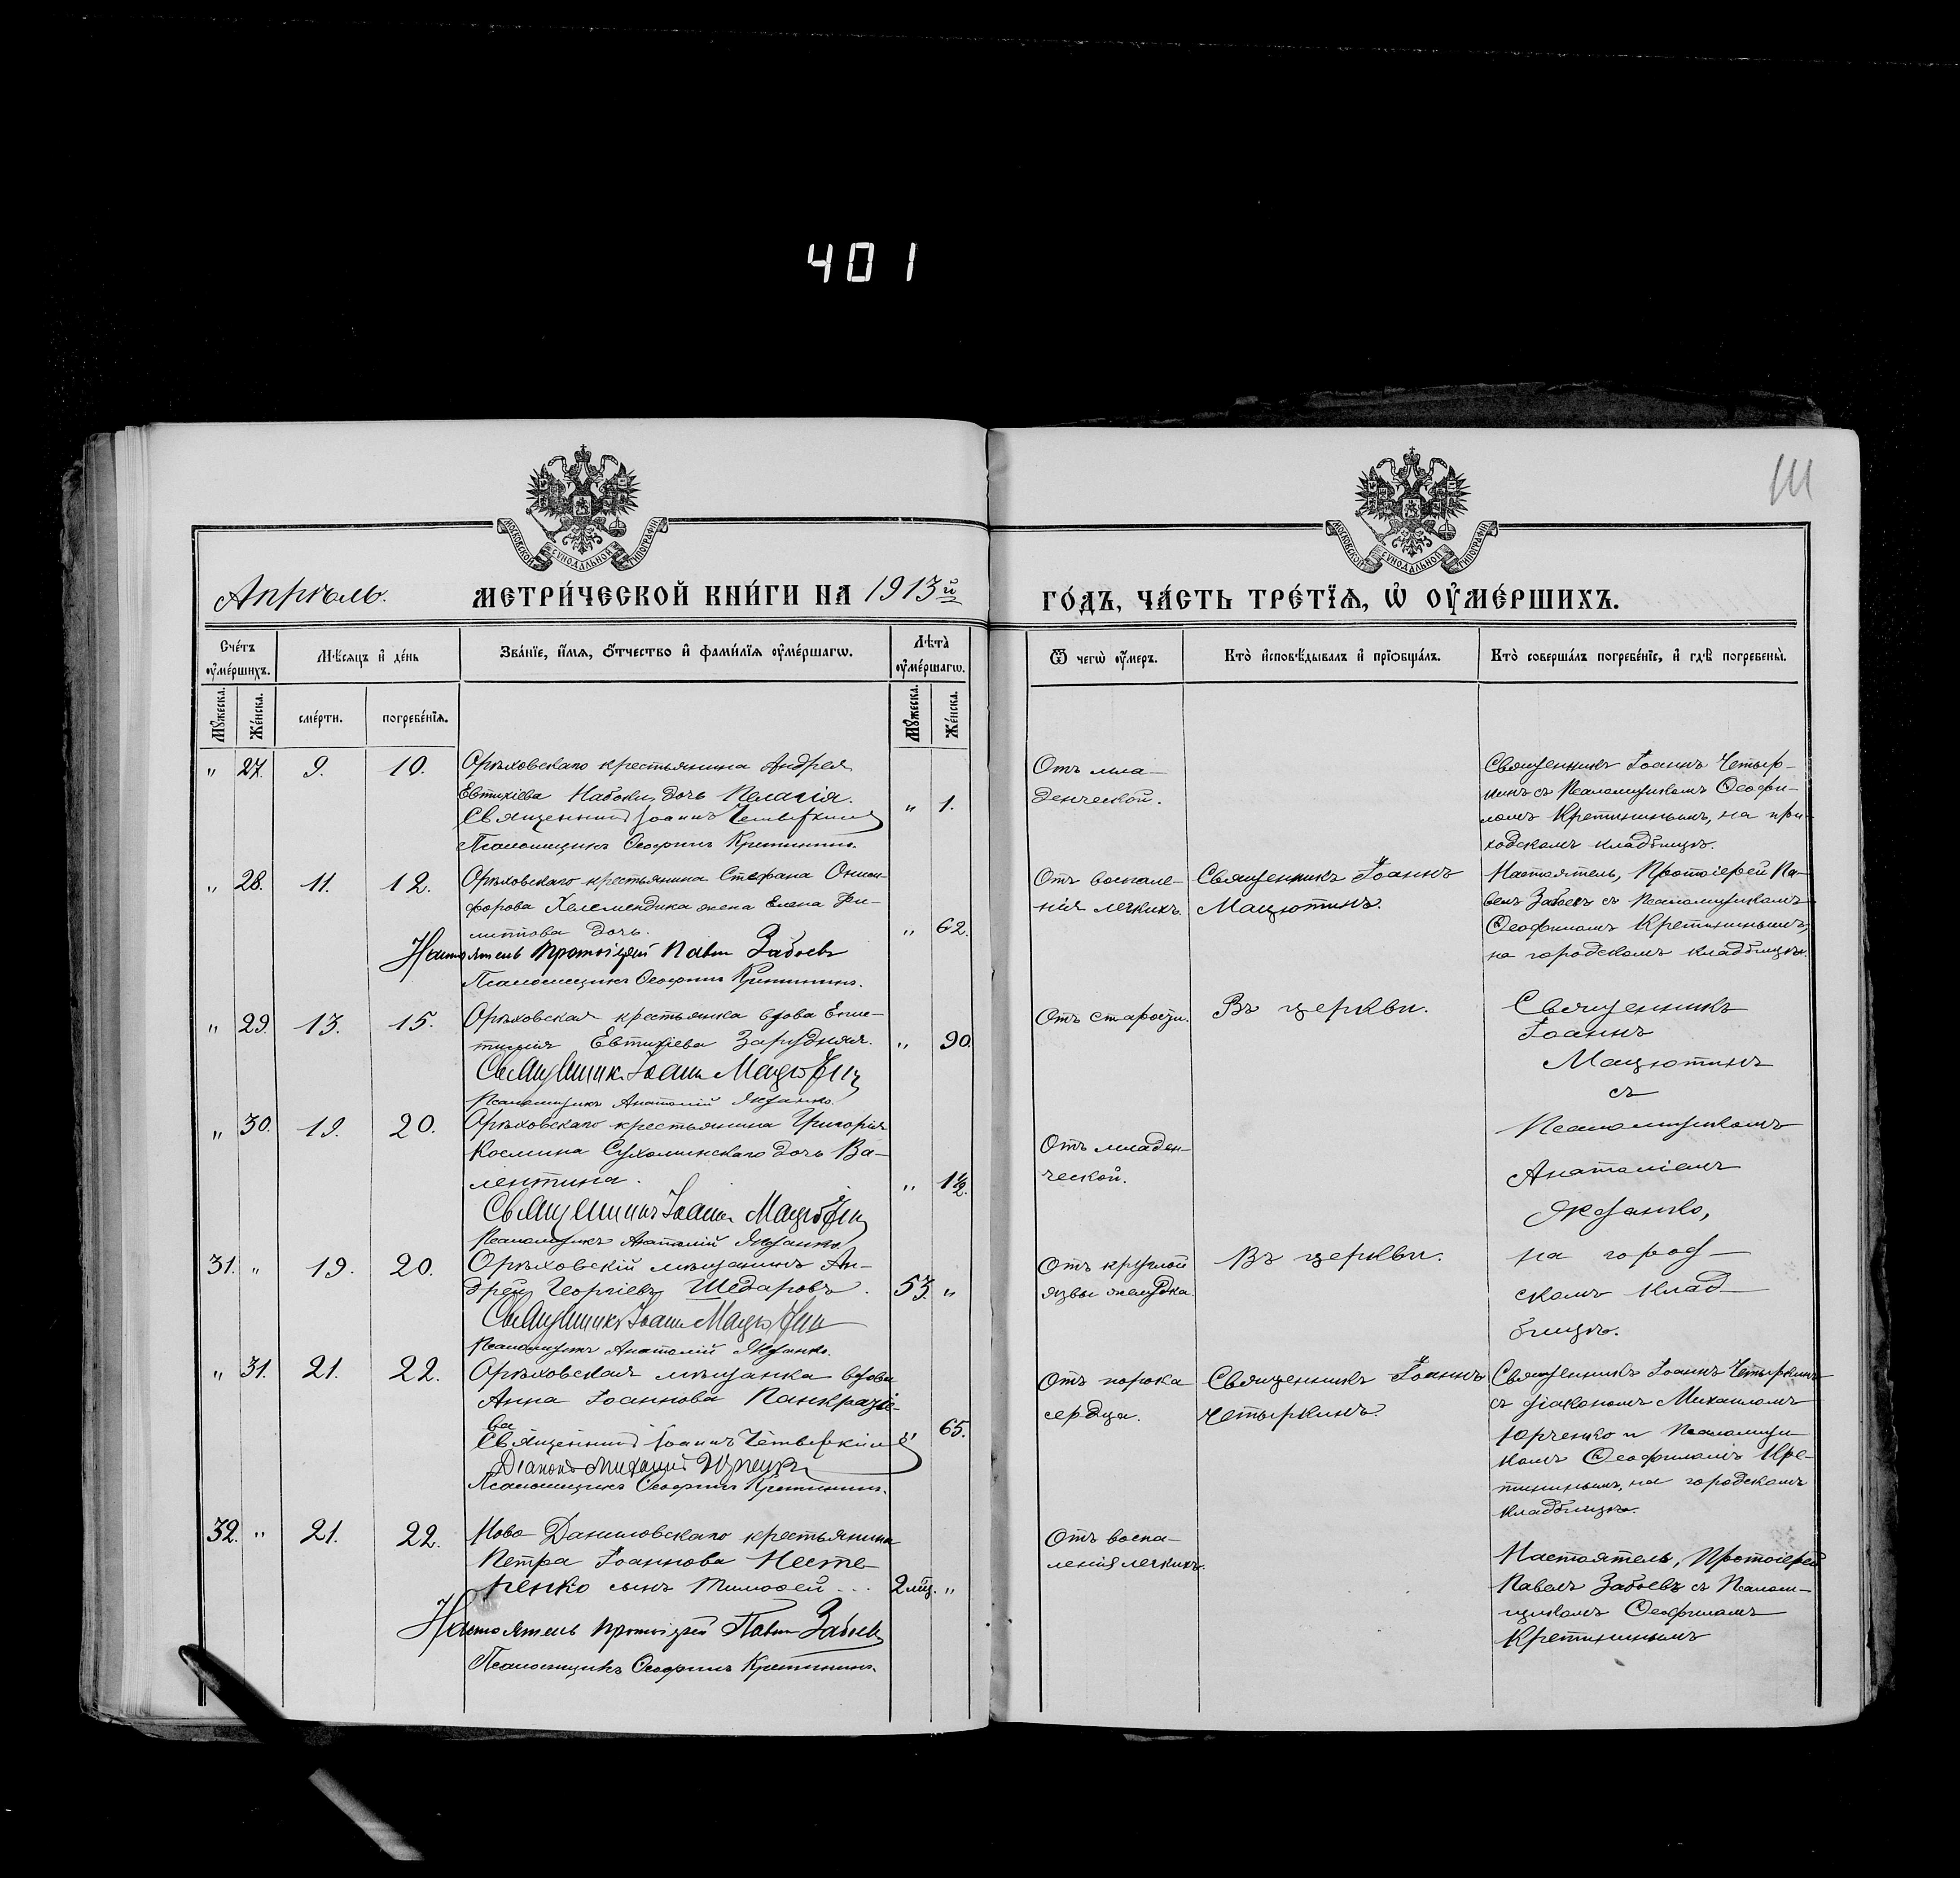 401
111
МОСКОВСКОЙ СѴНОДАЛЬНОЙ ТИПОГРАФІИ
МОСКОВСКОЙ СѴНОДАЛЬНОЙ ТИПОГРАФІИ
Апрѣль. МЕТРИ́ЧЕСКОЙ КНИ́ГИ НА 1913й ГО́ДЪ, ЧА́СТЬ ТРЕ́ТЇѦ, Ѽ ОУ҆МЕ́РШИХЪ.
Сче́тъ оу҆ме́ршихъ.
Мѣ́сѧцъ и҆ де́нь
Зва́нїе, и҆́мѧ, ѻ҆́тчество и҆ фами́лїѧ оу҆ме́ршагѡ.
Лѣта̀ оу҆ме́ршагѡ.
Ѿ чегѡ̀ оу҆́меръ.
Кто̀ и҆сповѣ́дывалъ и҆ прїѻбща́лъ.
Кто̀ соверша́лъ погребе́нїе, и҆ гдѣ̀ погребены̀.
Мꙋ́жеска.
Же́нска.
сме́рти.
погребе́нїѧ.
Мꙋ́жеска.
Же́нска.
" 27. 9. 10.
Орѣховскаго крестьянина Андрея
Евтихіева Набоки, дочь Пелагія.
Священникъ Іоаннъ Четыркинъ
Псаломщикъ Ѳеофилъ Кретининъ.
" 1.
Отъ мла-
денческой.
Священникъ Іоаннъ Четыр-
кинъ съ Псаломщикомъ Ѳеофи-
ломъ Кретининымъ, на при-
ходскомъ кладбищѣ.
" 28. 11. 12.
Орѣховскаго крестьянина Стефана Онисі-
форова Хелемендика жена Елена Фи-
липпова дочь.
Настоятель Протоіерей Павелъ Забоевъ
Псаломщикъ Ѳеофилъ Кретининъ.
" 62.
Отъ воспале-
нія легкихъ.
Священникъ Іоаннъ
Мацютинъ.
Настоятель, Протоіерей Па-
велъ Забоевъ съ Псаломщикомъ
Ѳеофиломъ Кретининымъ,
на городскомъ кладбищѣ.
" 29. 13. 15.
Орѣховская крестьянка вдова Епис-
тимія Евтихіева Зарудняя.
Священникъ Іоаннъ Мацютин
Псаломщикъ Анатолій
" 90.
Отъ старости.
Въ церкви.
Священникъ
Іоаннъ
Мацютинъ
съ
Псаломщикомъ
Анатоліемъ
на город-
скомъ клад-
бищѣ.
" 30. 19. 20.
Орѣховскаго крестьянина Григорія
Космина Сухоминскаго дочь Ва-
лентина.
Священникъ Іоаннъ Мацютин
Псаломщикъ Анатолій
" 1½.
Отъ младен-
ческой.
31. " 19. 20.
Орѣховскій мѣщанинъ Ан-
дрей Георгіевъ Шедаровъ.
Священникъ Іоаннъ Мацютин
Псаломщикъ Анатолій
53. "
Отъ круглой
язвы желудка.
Въ церкви.
" 31. 21. 22.
Орѣховская мѣщанка вдова
Анна Іоаннова Панкразіе-
ва
Священникъ Іоаннъ Четыркинъ
Діаконъ Михаилъ Юрченко
Псаломщикъ Ѳеофилъ Кретининъ.
" 65.
Отъ порока
сердца.
Священникъ Іоаннъ
Четыркинъ.
Священникъ Іоаннъ Четыркинъ
съ діакономъ Михаиломъ
Юрченко и Псаломщи-
комъ Ѳеофиломъ Кре-
тининымъ, на городскомъ
кладбищѣ.
32. " 21. 22.
Ново-Даниловскаго крестьянина
Петра Іоаннова Несте-
ренко сынъ Тимоѳей
Настоятель Протоіерей Павелъ Забоевъ
Псаломщикъ Ѳеофилъ Кретининъ.
2 мѣц. "
Отъ воспа-
ленія легкихъ.
Настоятель, Протоіерей
Павелъ Забоевъ съ Псалом-
щикомъ Ѳеофиломъ
Кретининымъ